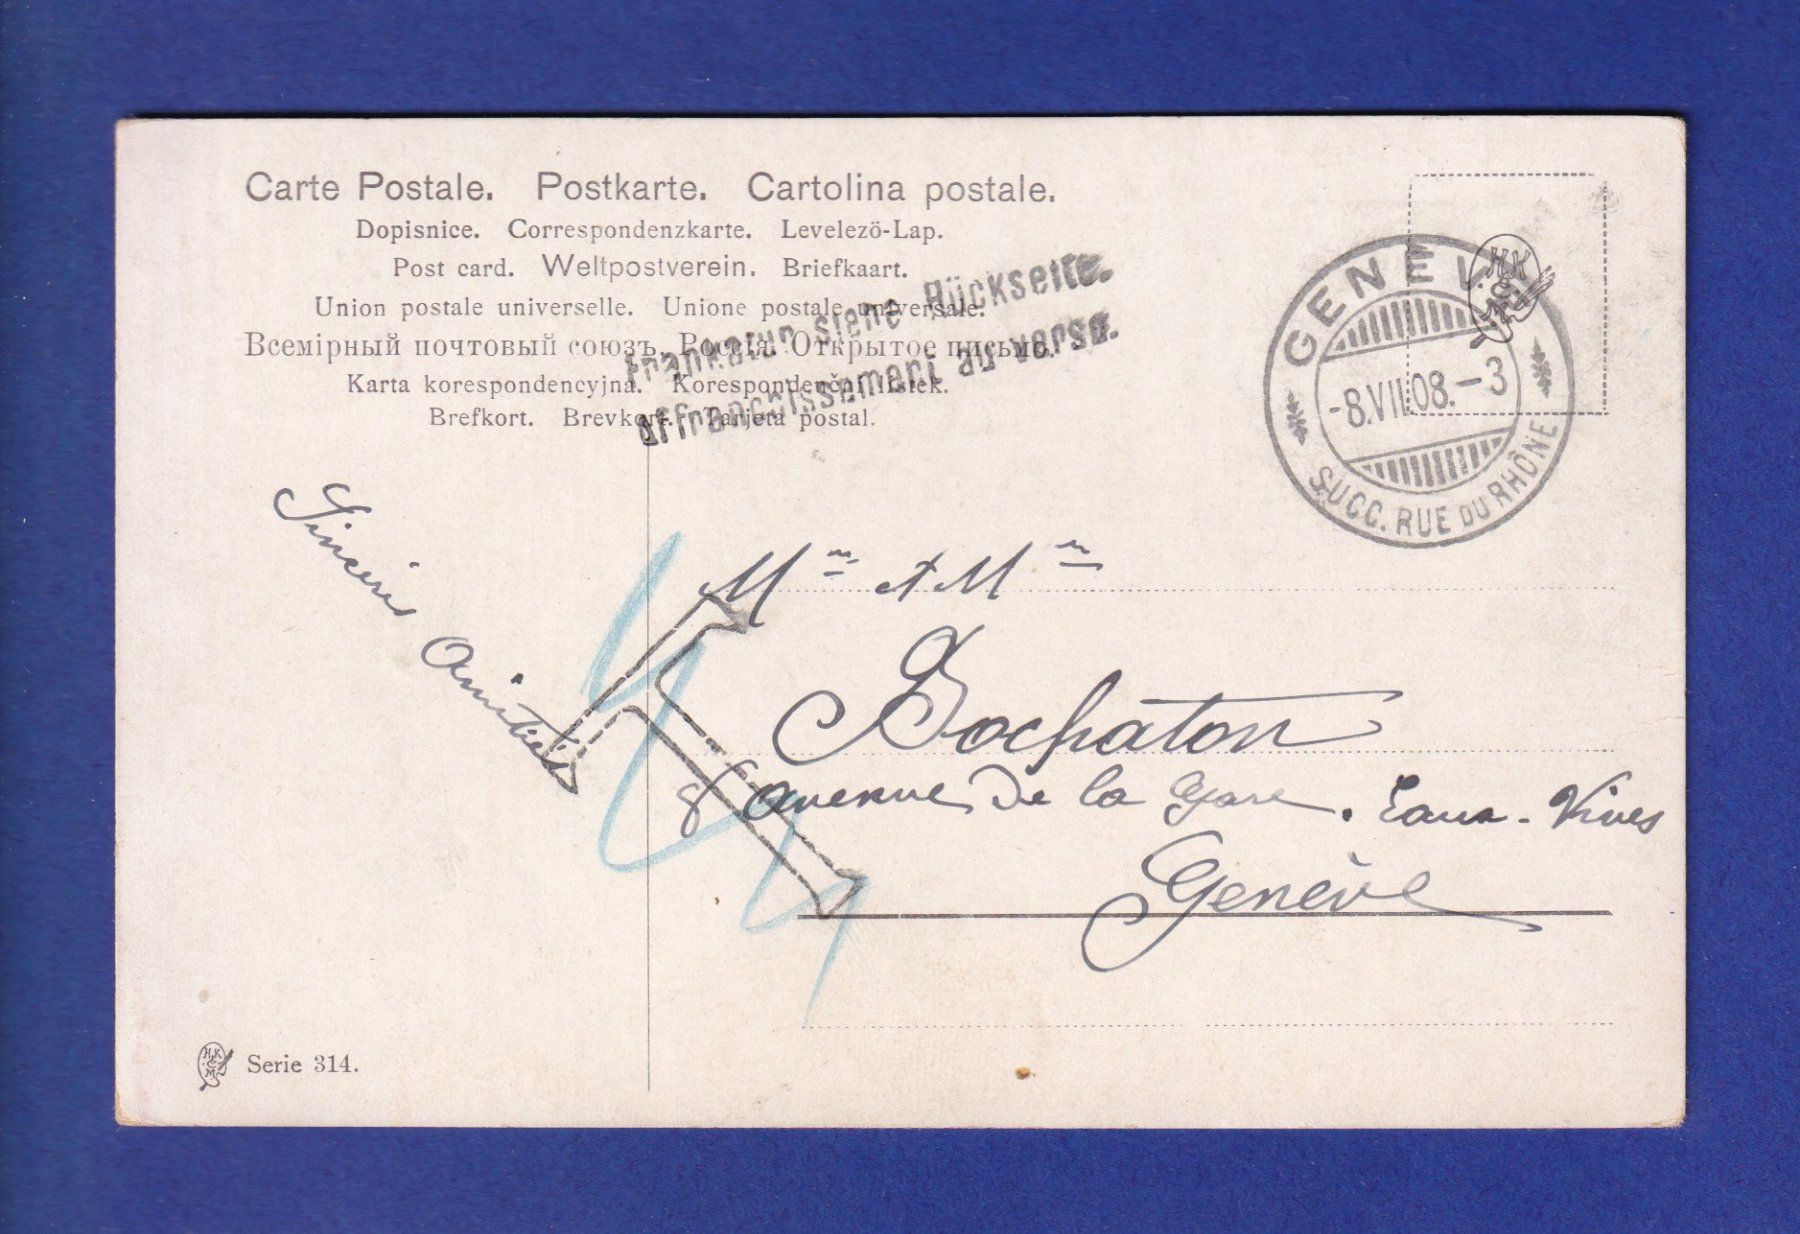 Carte Postale. Postkarte. Cartolina postale.
Dopisnice. Correspondenzkarte. Levelezö-Lap.
Post card. Weltpostverein. Briefkaart.
Union postale universelle. Unione postale universale.
Всемірный почтовый союзъ. Россія. Открытое письмо.
Karta korespondencyjna. Korespondenční listek.
Brefkort. Brevkort. Tarjeta postal.
Frankatur siehe Rückseite.
affranchissement au verso.
GENEV
-8.VII.08.-3
SUCC. RUE DU RHÔNE
H K
Sincères
Amitiés
T
M et M
Bochaton
8 avenue De la Gare. Eaux-Vives
Genève
H K
E
M
Serie 314.